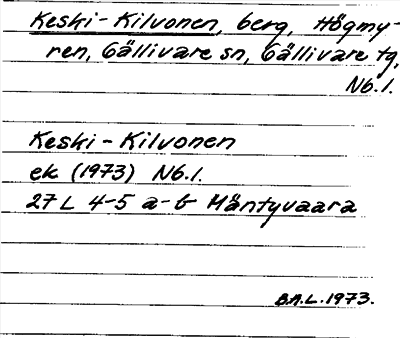 Keski-Kilvonen, berg, Högmy-
ren, Gällivare sn, Gällivare tg,
Nb.1.
Keski-Kilvonen
ek (1973) Nb.1.
27L 4-5 a-b Mäntyvaara
B.A.L. 1973.